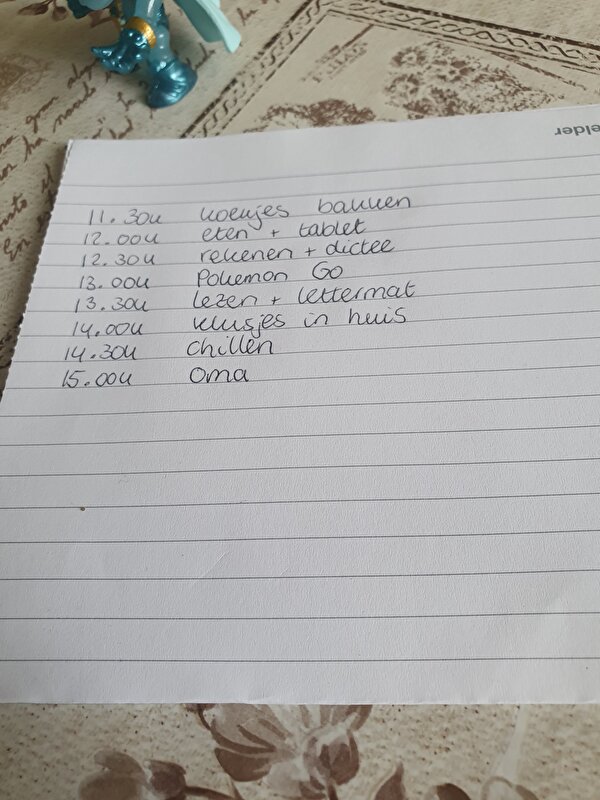 elder
11.30u koekjes bakken
12.00u eten + tablet
12.30u rekenen + dictee
13.00u Pokemon Go
13.30u lezen + lettermat
14.00u klusjes in huis
14.30u chillen
15.00u oma